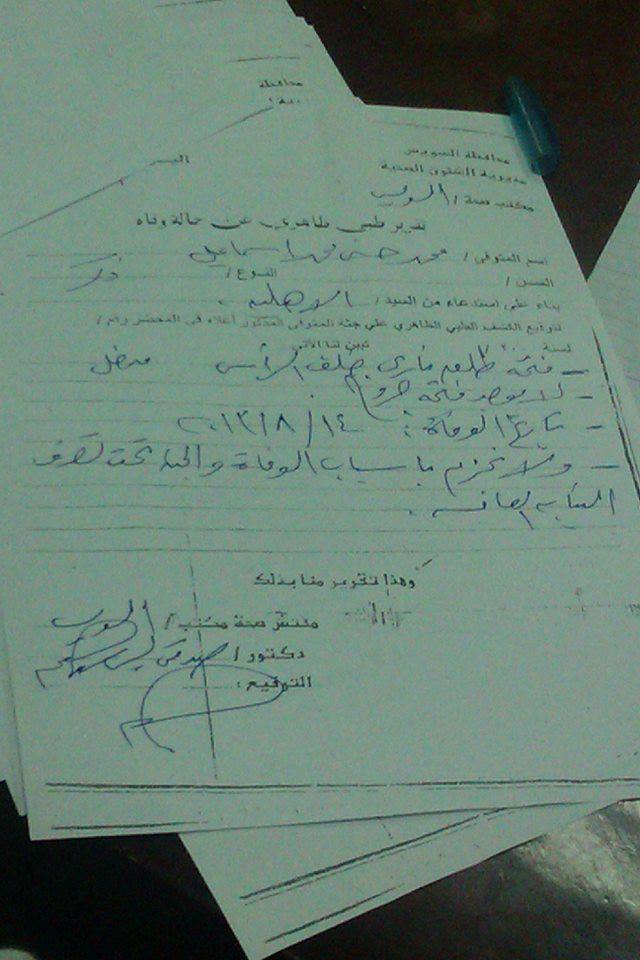 محافظة
محافظة السويس
مديرية الشئون الصحية
مكتب صحة / السويس
تقرير طبى ظاهرى عن حالة وفاه
اسم المتوفى / محمد حسنى محمد اسماعيل
السن / النوع / ذكر
بناء على استدعاء من السيد / الاهلية .
لتوقيع الكشف الطبى الظاهرى على جثة المتوفى المذكور أعلاه فى المحضر رقم /
لسنة ٢٠٠ تبين لنا الآتى
- فتحة طلق نارى خلف الرأس
- لا يوجد فتحة خروج .
- تاريخ الوفاة : ١٤ / ٨ / ٢٠١٣
- ولا نجزم باسباب الوفاة والجثة تحت تصرف
النيابة العامة .
وهذا تقرير منا بذلك
مفتش صحة مكتب / السويس
دكتور /
التوقيع :